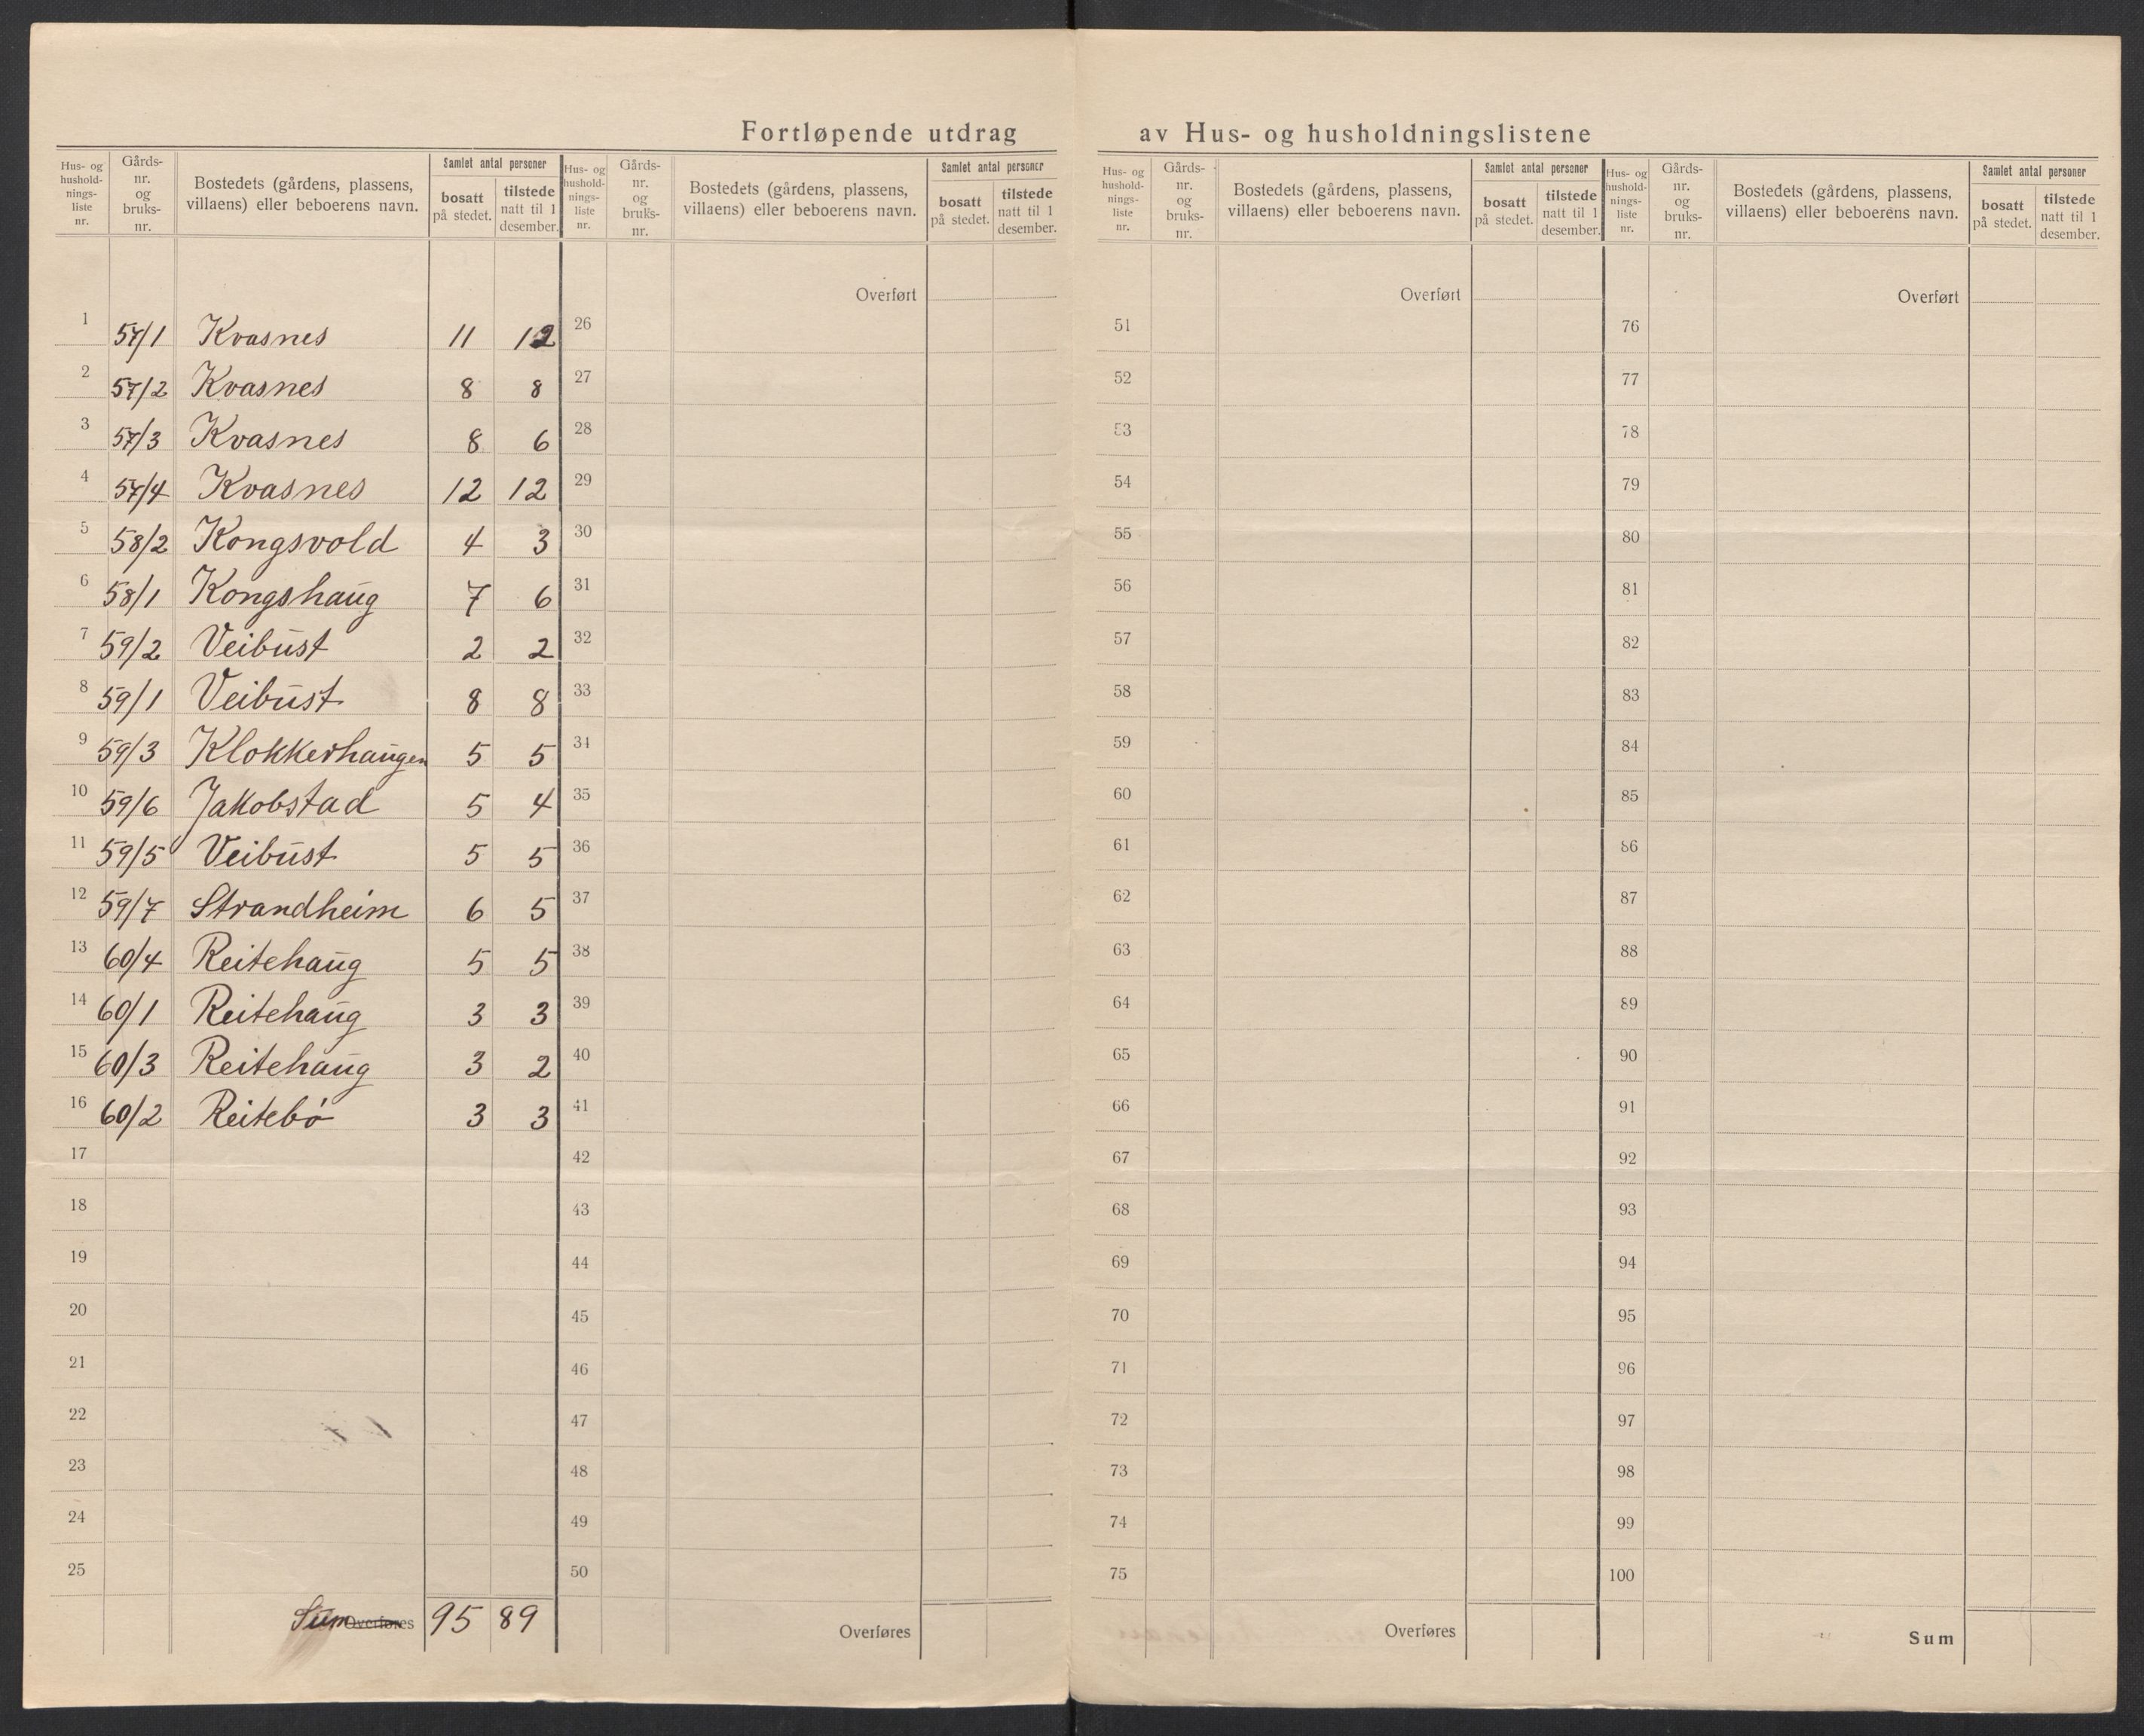 Fortløpende utdrag av Hus- og husholdningslistene
Hus- og hushold- nings- liste nr. | Gårds- nr. og bruks- nr. | Bostedets (gårdens, plassens, villaens) eller beboerens navn. | Samlet antal personer | bosatt på stedet. | tilstede natt til 1 desember.
Hus- og hushold- nings- liste nr. | Gårds- nr. og bruks- nr. | Bostedets (gårdens, plassens, villaens) eller beboerens navn. | Samlet antal personer | bosatt på stedet. | tilstede natt til 1 desember.
Hus- og hushold- nings- liste nr. | Gårds- nr. og bruks- nr. | Bostedets (gårdens, plassens, villaens) eller beboerens navn. | Samlet antal personer | bosatt på stedet. | tilstede natt til 1 desember.
Hus- og hushold- nings- liste nr. | Gårds- nr. og bruks- nr. | Bostedets (gårdens, plassens, villaens) eller beboerens navn. | Samlet antal personer | bosatt på stedet. | tilstede natt til 1 desember.
Overført Overført Overført
1 57/1 Kvasnes 11 12 26 51 76
2 57/2 Kvasnes 8 8 27 52 77
3 57/3 Kvasnes 8 6 28 53 78
4 57/4 Kvasnes 12 12 29 54 79
5 58/2 Kongsvold 4 3 30 55 80
6 58/1 Kongshaug 7 6 31 56 81
7 59/2 Veibust 2 2 32 57 82
8 59/1 Veibust 8 8 33 58 83
9 59/3 Klokkerhaugen 5 5 34 59 84
10 59/6 Jakobstad 5 4 35 60 85
11 59/5 Veibust 5 5 36 61 86
12 59/7 Strandheim 6 5 37 62 87
13 60/4 Reitehaug 5 5 38 63 88
14 60/1 Reitehaug 3 3 39 64 89
15 60/3 Reitehaug 3 2 40 65 90
16 60/2 Reitebø 3 3 41 66 91
17 42 67 92
18 43 68 93
19 44 69 94
20 45 70 95
21 46 71 96
22 47 72 97
23 48 73 98
24 49 74 99
25 50 75 100
Sum Overføres 95 89 Overføres Overføres Sum